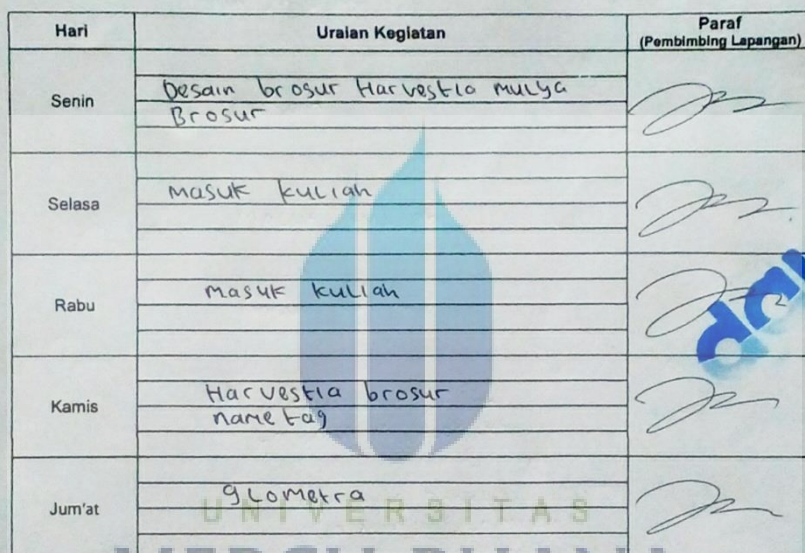 Hari Uraian Kegiatan Paraf
(Pembimbing Lapangan)
Senin
Desain brosur Harvestla Mulya
Brosur
Selasa
Masuk kuliah
Rabu
Masuk kuliah
Kamis
Harvestia brosur
name tag
Jum'at
glometra
UNIVERSITAS